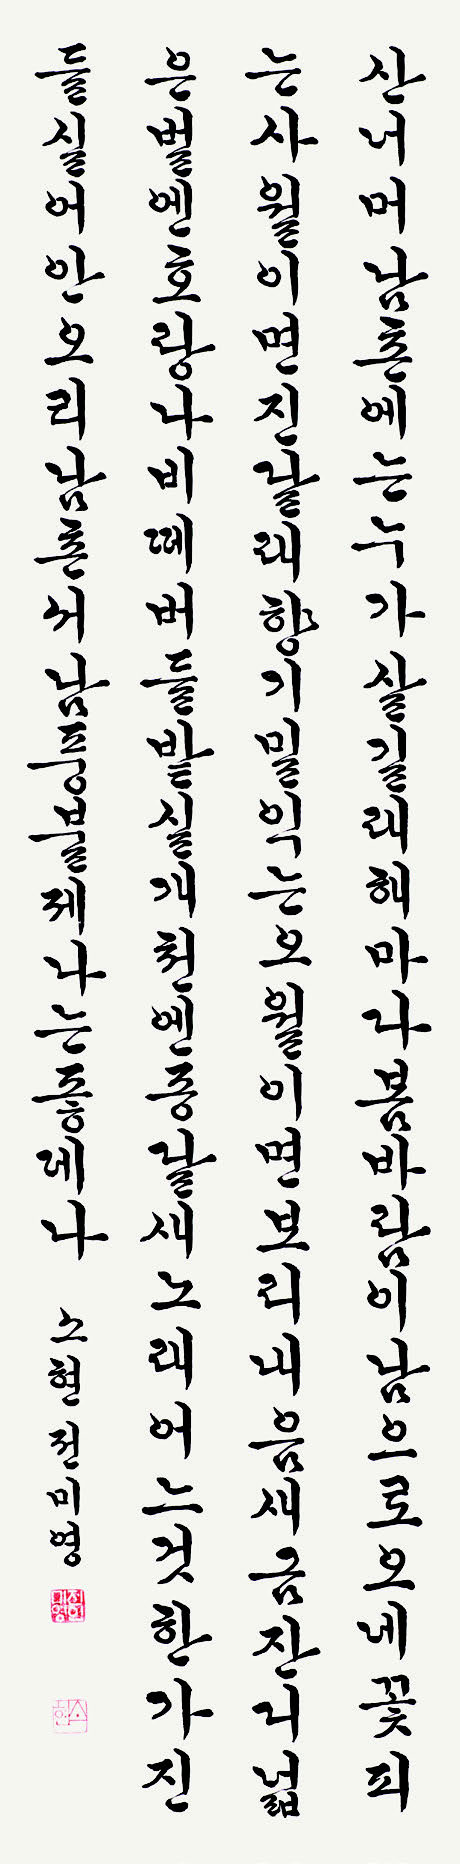 산너머남촌에는누가살길래해마다봄바람이남으로오네꽃피
는사월이면진달래향기밀익는오월이면보리내음새금잔디넓
은벌엔호랑나비떼버들밭실개천엔종달새노래어느것한가진
들실어안오리남촌서남풍불제나는좋데나 소현전미영
소현